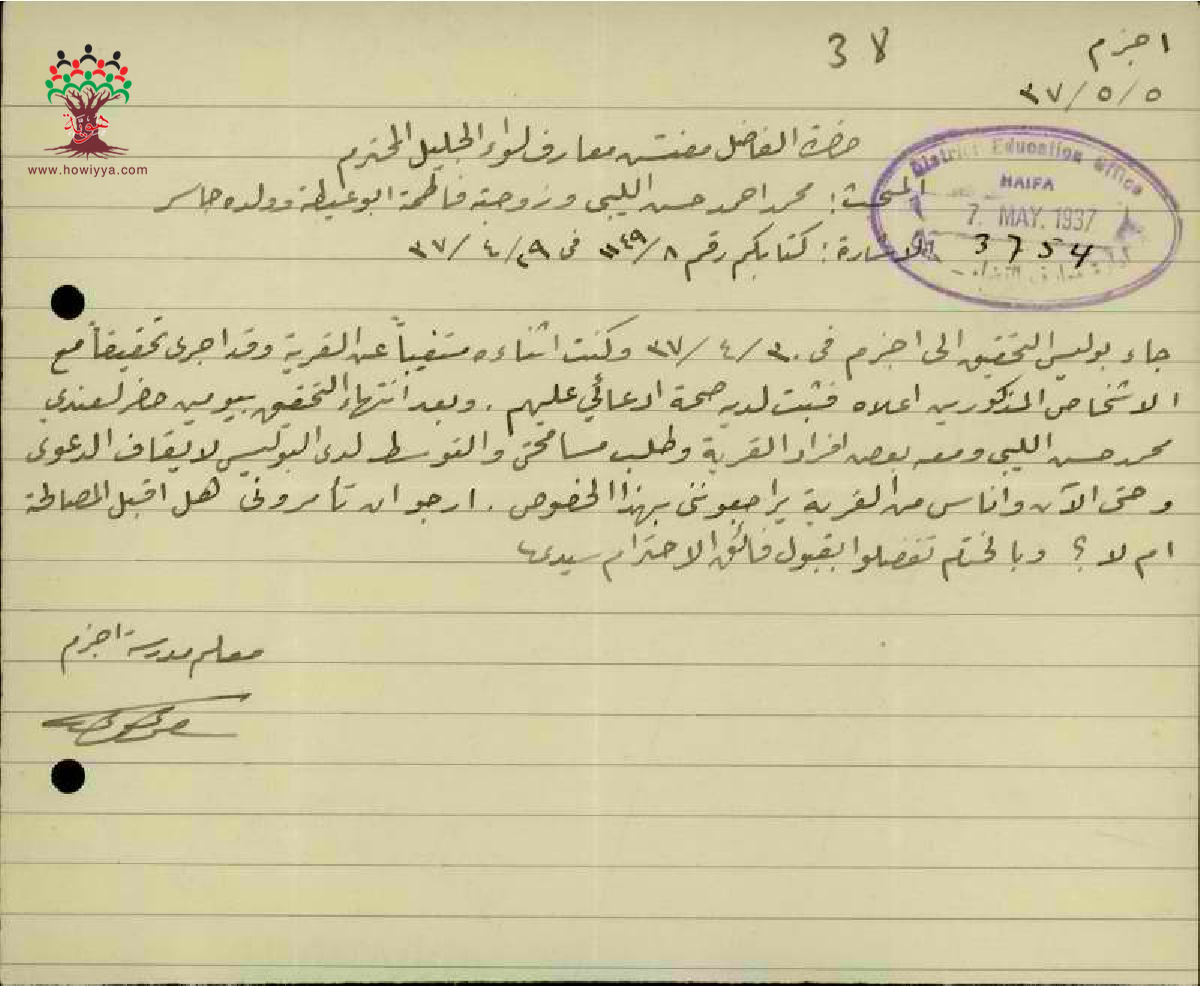 اجزم
38
٣٧/٥/٥
حضرة الفاضل مفتش معارف لواء الجليل المحترم
المبحث: محمد احمد حسن الليبي وزوجته فاطمة ابو عيطة وولده جاسر
الاشارة: كتابكم رقم ١١٤٩/٨ في ٣٧/٤/٢٩
District Education Office
HAIFA
7. MAY. 1937
3754
جاء بوليس التحقيق الى اجزم في ٣٧/٤/٣٠ وكنت اثناءه متغيباً عن القرية وقد اجرى تحقيقاً مع
الاشخاص المذكورين اعلاه فثبت لديه صحة ادعائي عليهم. وبعد انتهاء التحقيق بيومين حضر لعندي
محمد حسن الليبي ومعه بعض افراد القرية وطلب مسامحتي والتوسط لدى البوليس لايقاف الدعوى
وحتى الآن واناس من القرية يراجعونني بهذا الخصوص. ارجو ان تأمروني هل اقبل المصالحة
ام لا؟ وبالختام تفضلوا بقبول فائق الاحترام سيدي
معلم مدرسة اجزم
هوية
www.howiyya.com